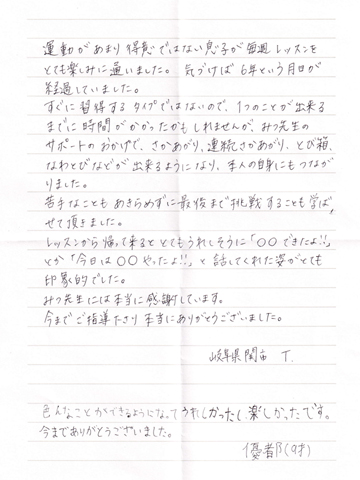 運動があまり得意ではない息子が毎週レッスンを
とても楽しみに通いました。気づけば6年という月日が
経過していました。
すぐに習得するタイプではないので、1つのことが出来る
までに時間がかかったかもしれませんが、みつ先生の
サポートのおかげで、さかあがり、連続さかあがり、とび箱、
なわとびなどが出来るようになり、本人の自身にもつながり
りました。
苦手なこともあきらめずに最後まで挑戦することも学ば
せて頂きました。
レッスンから帰って来るととてもうれしそうに「〇〇できたよ!!」
とか「今日は〇〇やったよ!!」と話してくれた姿がとても
印象的でした。
みつ先生には本当に感謝しています。
今までご指導下さり本当にありがとうございました。
岐阜県関市 T.
色んなことができるようになってうれしかったし、楽しかったです。
今までありがとうございました。
優都(9才)